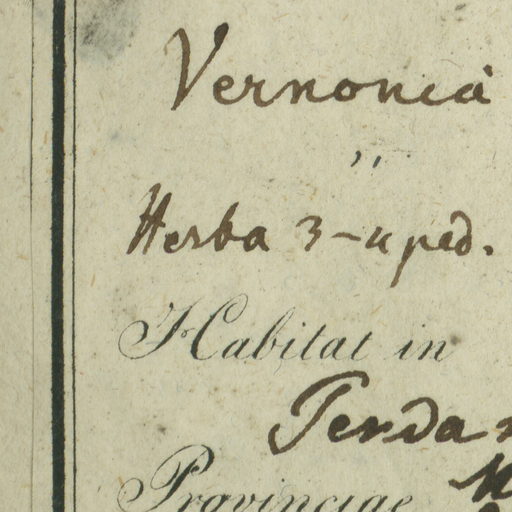 Vernonia
,,
Herba 3-4 ped.
Habitat in
Provinciae